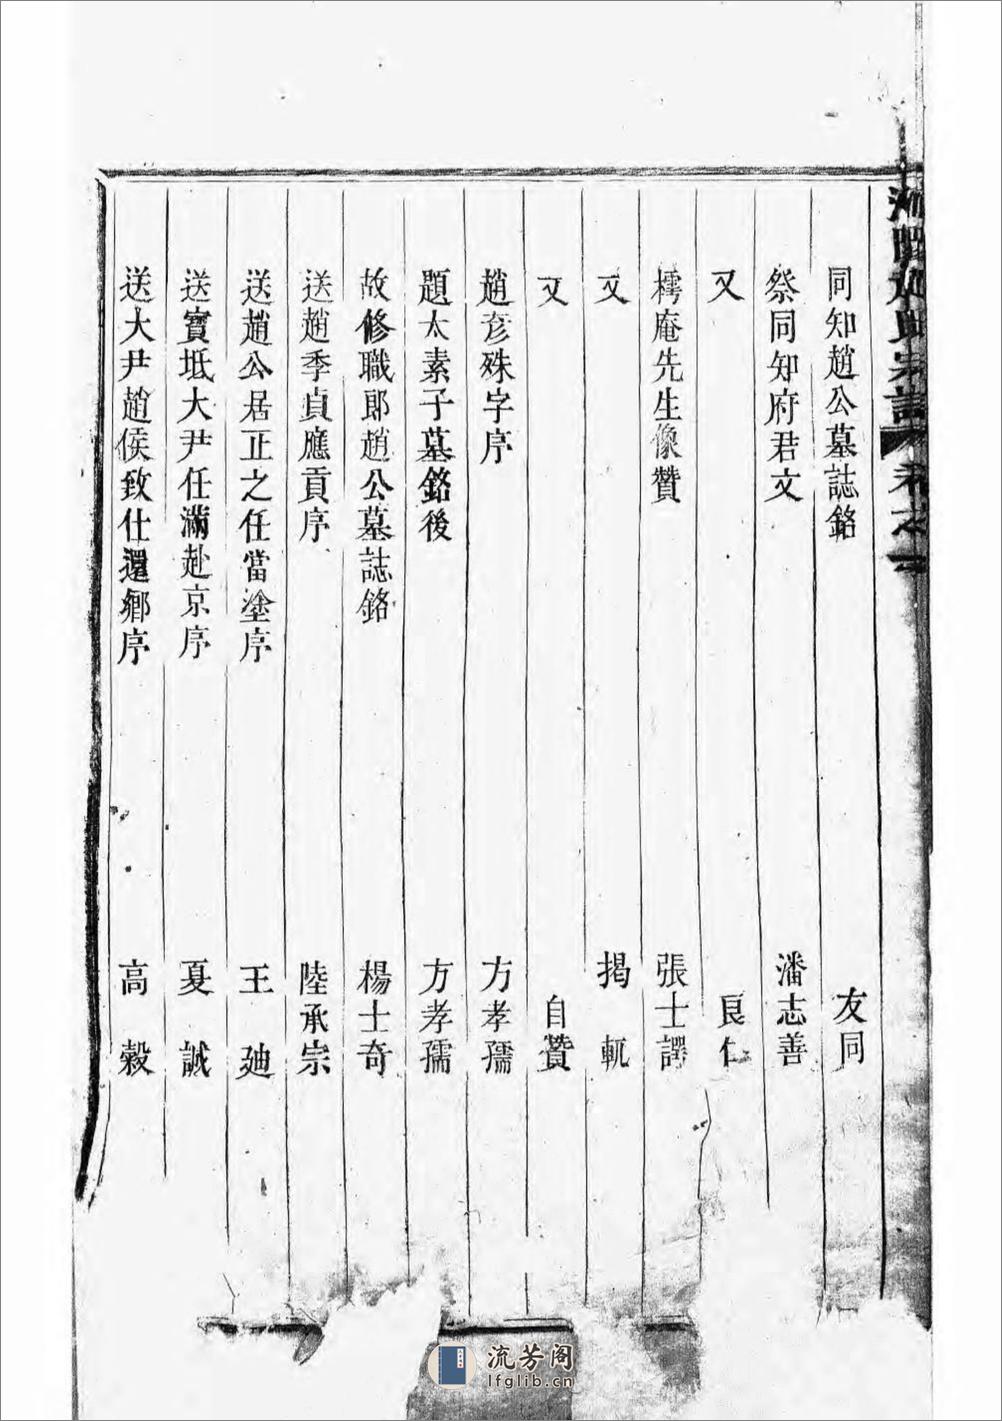 趙氏宗譜 卷之一
同知趙公墓誌銘 友同
祭同知府君文 潘志善
又 良仁
樗庵先生像贊 張士諤
又 揭軏
又 自贊
趙彥殊字序 方孝孺
題太素子墓銘後 方孝孺
故修職郎趙公墓誌銘 楊士奇
送趙季貞應貢序 陸承宗
送趙公居正之任當塗序 王廸
送寶坻大尹任滿赴京序 夏誠
送大尹趙侯致仕還鄉序 高穀
流芳阁
lfglib.cn